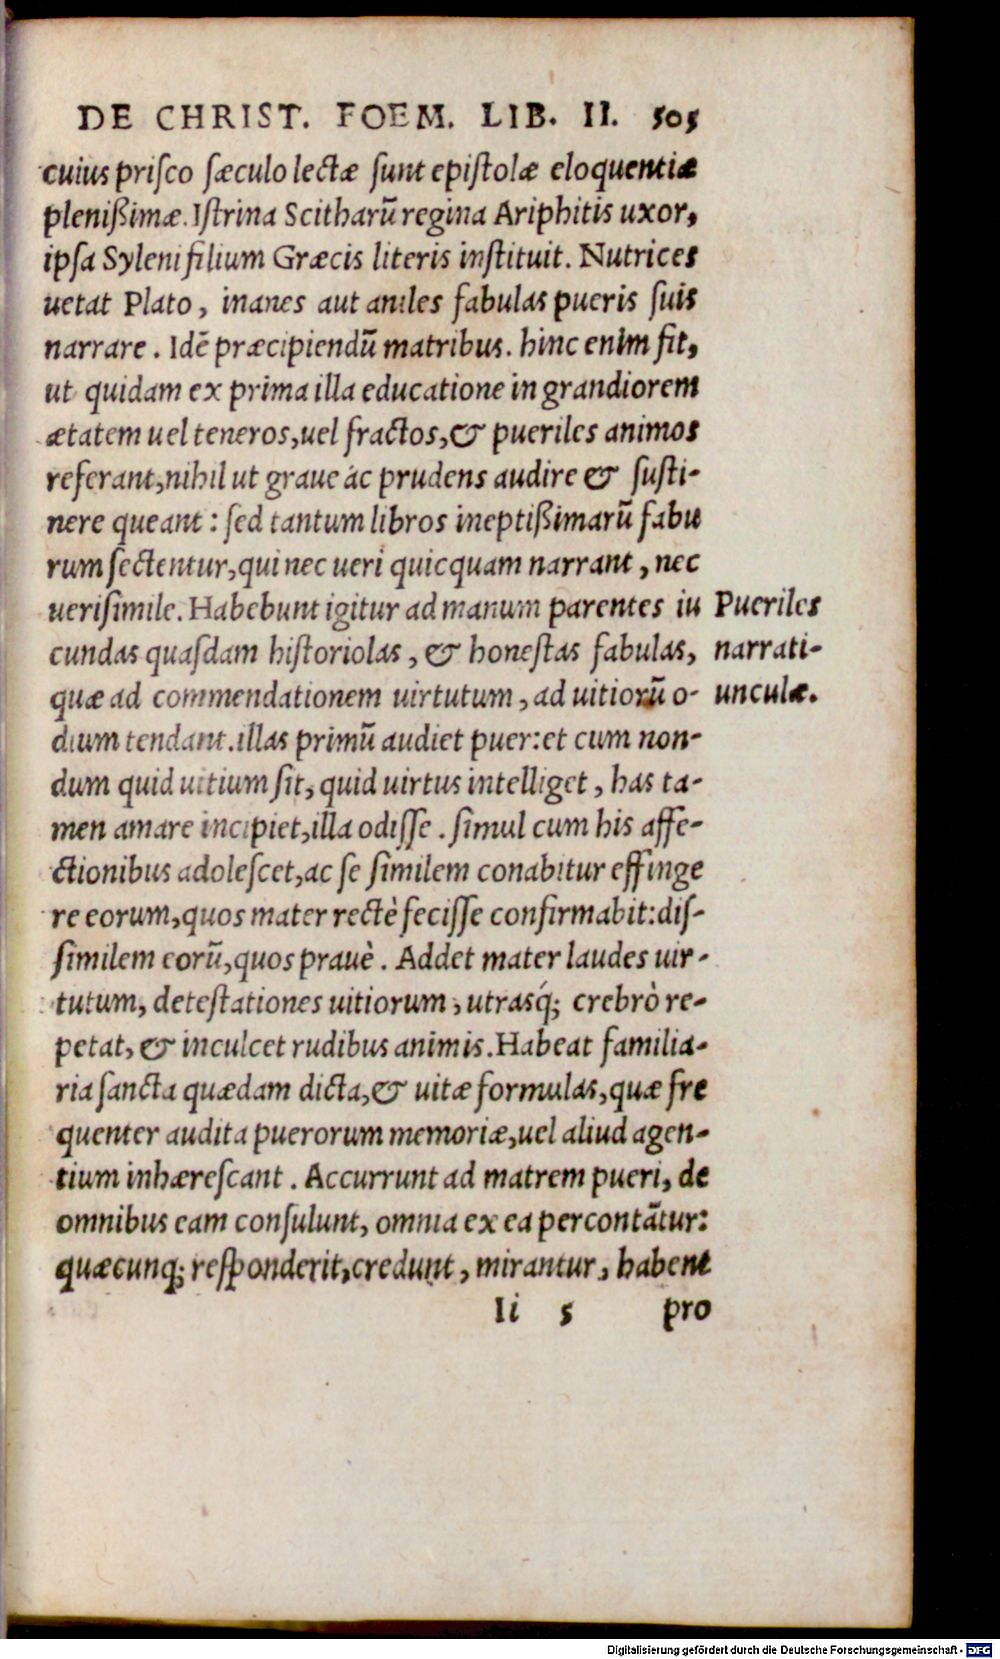 DE CHRIST. FOEM. LIB. II. 505
cuius priſco ſæculo lectæ ſunt epiſtolæ eloquentiæ
pleniſſimæ. Iſtrina Scitharū regina Ariphitis uxor,
ipſa Syleni filium Græcis literis inſtituit. Nutrices
uetat Plato, inanes aut aniles fabulas pueris ſuis
narrare. Idē præcipiendū matribus. hinc enim fit,
ut quidam ex prima illa educatione in grandiorem
ætatem uel teneros, uel fractos, & pueriles animos
referant, nihil ut graue ac prudens audire & ſuſti-
nere queant: ſed tantum libros ineptiſſimarū fabu
rum ſectentur, qui nec ueri quicquam narrant, nec
ueriſimile. Habebunt igitur ad manum parentes iu
cundas quaſdam hiſtoriolas, & honeſtas fabulas,
quæ ad commendationem uirtutum, ad uitiorū o-
dium tendant. illas primū audiet puer: et cum non-
dum quid uitium ſit, quid uirtus intelliget, has ta-
men amare incipiet, illa odiſſe. ſimul cum his affe-
ctionibus adoleſcet, ac ſe ſimilem conabitur effinge
re eorum, quos mater rectè feciſſe confirmabit: diſ-
ſimilem eorū, quos prauè. Addet mater laudes uir-
tutum, deteſtationes uitiorum, utrasq́; crebrò re-
petat, & inculcet rudibus animis. Habeat familia-
ria ſancta quædam dicta, & uitæ formulas, quæ fre
quenter audita puerorum memoriæ, uel aliud agen-
tium inhæreſcant. Accurrunt ad matrem pueri, de
omnibus eam conſulunt, omnia ex ea percontātur:
quæcunq; reſponderit, credunt, mirantur, habent
Ii 5 pro
Pueriles
narrati-
unculæ.
Digitalisierung gefördert durch die Deutsche Forschungsgemeinschaft - DFG